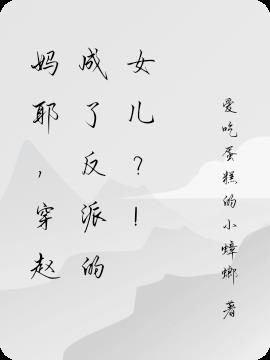 妈耶，穿赵
成了反派的
女儿？！
爱吃蛋糕的小蟑螂 著